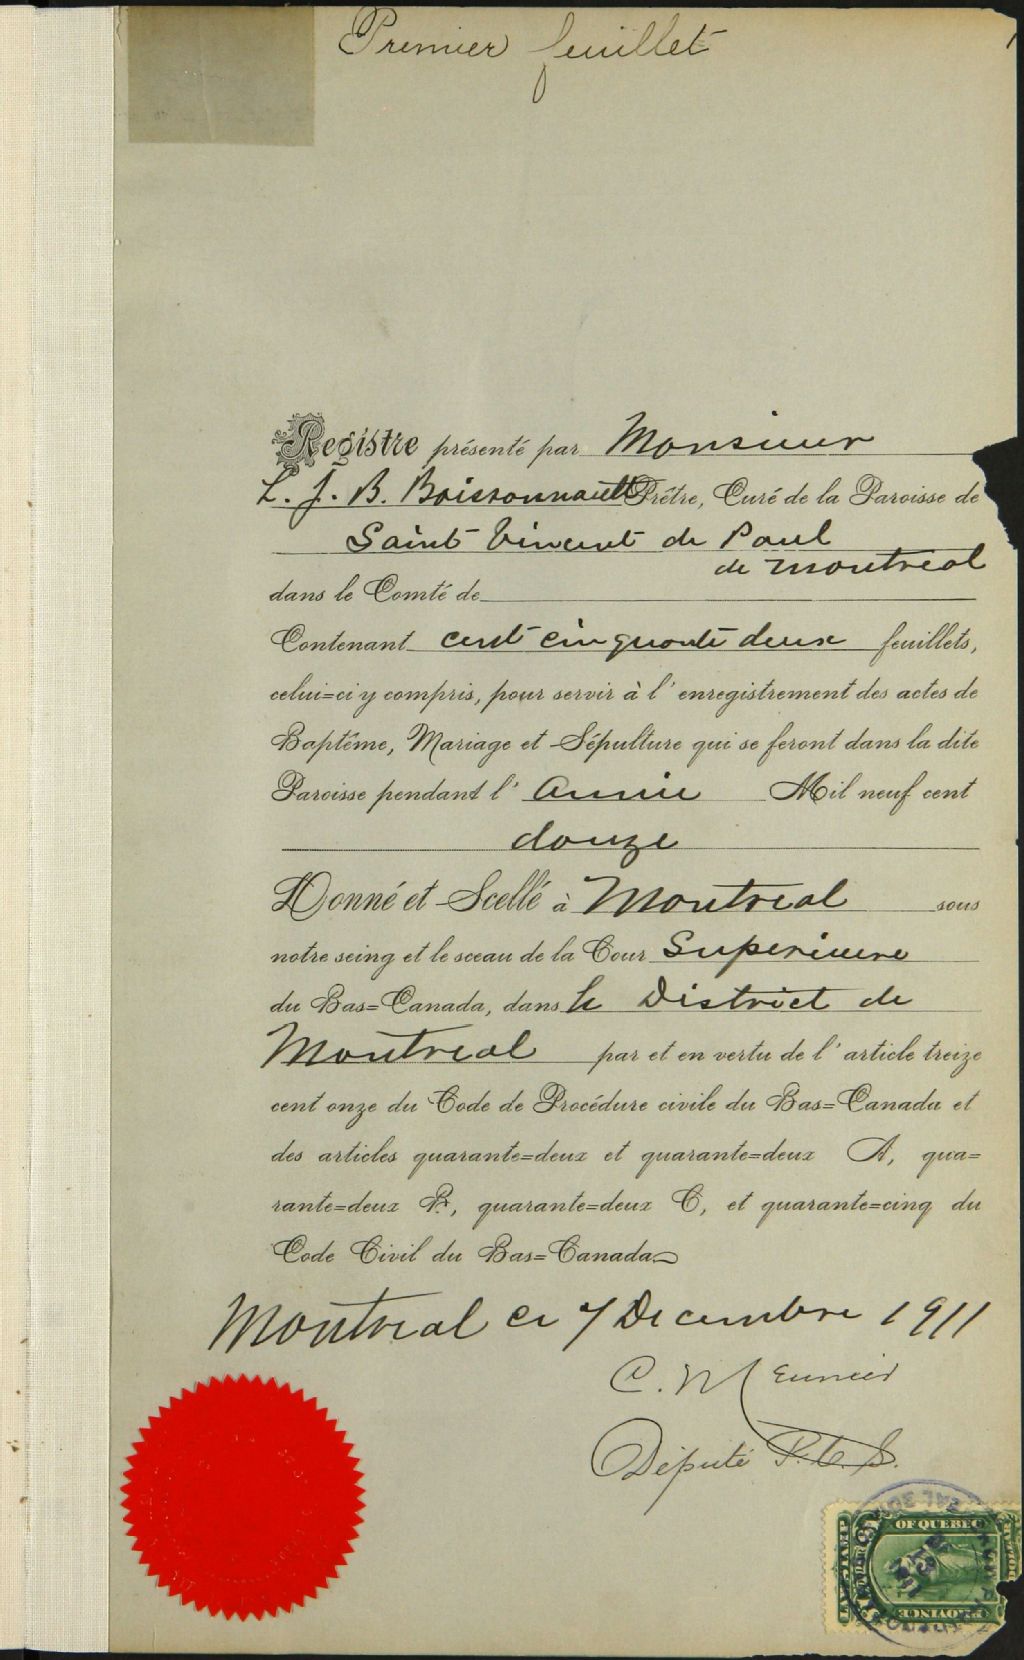 Premier feuillet
Registre présenté par Monsieur
L. J. B. Boissonnault Prêtre, Curé de la Paroisse de
Saint Vincent de Paul
de Montreal
dans le Comté de
Contenant cent cinquante deux feuillets,
celui=ci y compris, pour servir à l'enregistrement des actes de
Baptême, Mariage et Sépulture qui se feront dans la dite
Paroisse pendant l'Année Mil neuf cent
douze
Donné et Scellé à Montreal sous
notre seing et le sceau de la Cour Superieure
du Bas=Canada, dans le District de
Montreal par et en vertu de l'article treize
cent onze du Code de Procédure civile du Bas=Canada et
des articles quarante=deux et quarante=deux A, qua=
rante=deux B, quarante=deux C, et quarante=cinq du
Code Civil du Bas=Canada
Montreal ce 7 Decembre 1911
C. Meunier
Député P. C. S.
OF QUEBEC
PROVINCE